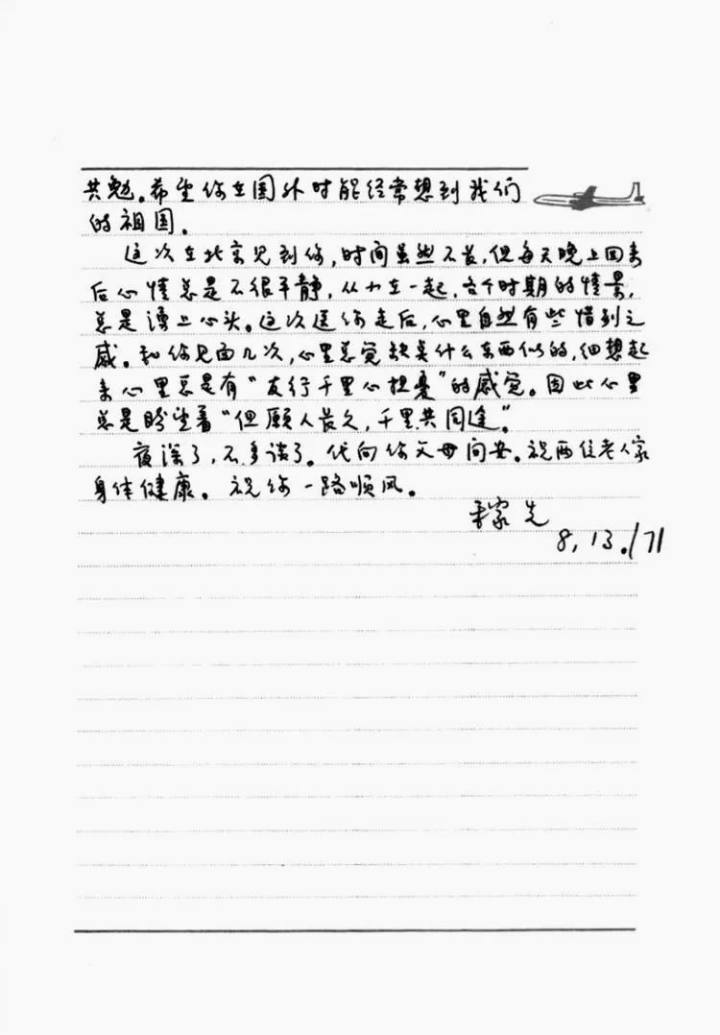 共勉。希望你在国外时能经常想到我们
的祖国。
这次在北京见到你，时间虽然不长，但每天晚上回来
后心情总是不很平静，从小在一起，各个时期的情景，
总是涌上心头。这次送你走后，心里自然有些惜别之
感。和你见面几次，心里总觉缺点什么东西似的，细想起
来心里总是有“友行千里心担忧”的感觉。因此心里
总是盼望着“但愿人长久，千里共同途”。
夜深了，不多谈了。代向你父母问安。祝两位老人家
身体健康。祝你一路顺风。
稼先
8，13．/71